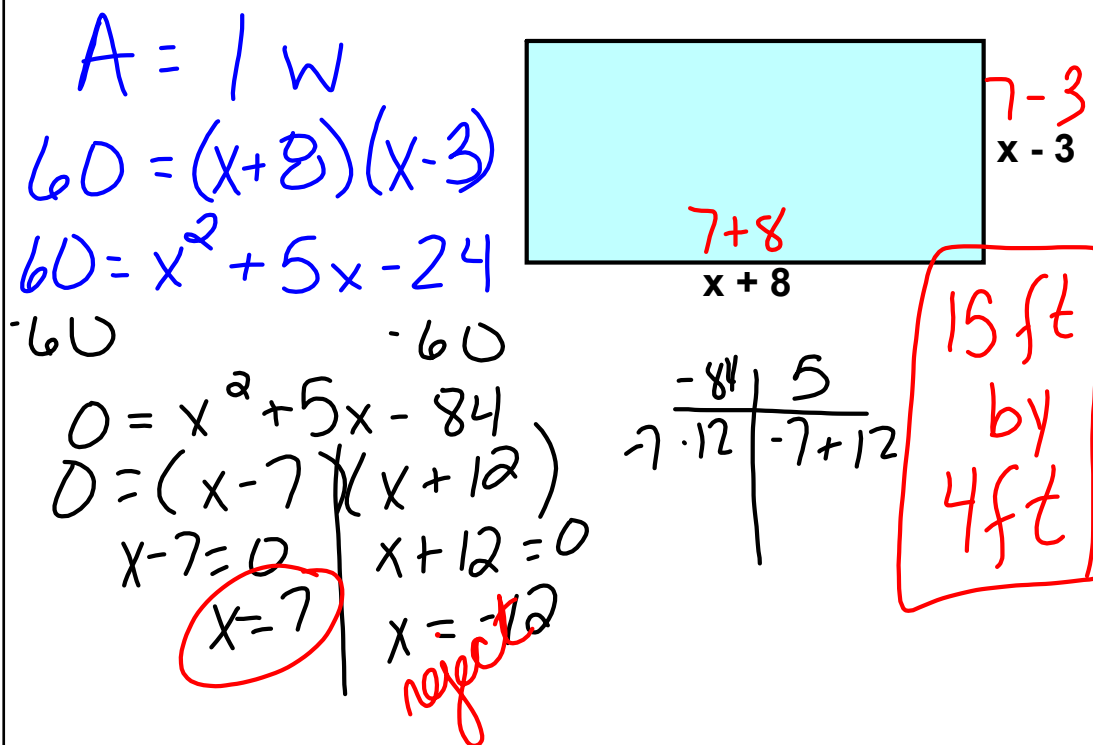 A = l w
60 = (x+8)(x-3)
60 = x² + 5x - 24
-60 -60
0 = x² + 5x - 84
0 = (x-7)(x+12)
x-7=0 x+12=0
x=7 x=-12
reject
7-3
x - 3
7+8
x + 8
-84 5
-7·12 -7+12
15 ft
by
4 ft